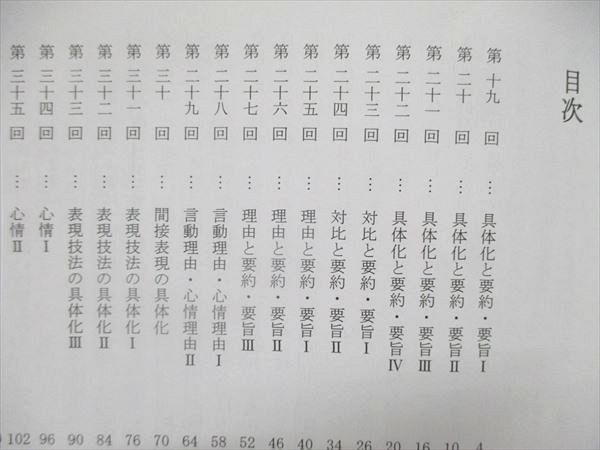 目次
第十九回…具体化と要約・要旨Ⅰ 4
第二十回…具体化と要約・要旨Ⅱ 10
第二十一回…具体化と要約・要旨Ⅲ 16
第二十二回…具体化と要約・要旨Ⅳ 20
第二十三回…対比と要約・要旨Ⅰ 26
第二十四回…対比と要約・要旨Ⅱ 34
第二十五回…理由と要約・要旨Ⅰ 40
第二十六回…理由と要約・要旨Ⅱ 46
第二十七回…理由と要約・要旨Ⅲ 52
第二十八回…言動理由・心情理由Ⅰ 58
第二十九回…言動理由・心情理由Ⅱ 64
第三十回…間接表現の具体化 70
第三十一回…表現技法の具体化Ⅰ 76
第三十二回…表現技法の具体化Ⅱ 84
第三十三回…表現技法の具体化Ⅲ 90
第三十四回…心情Ⅰ 96
第三十五回…心情Ⅱ 102